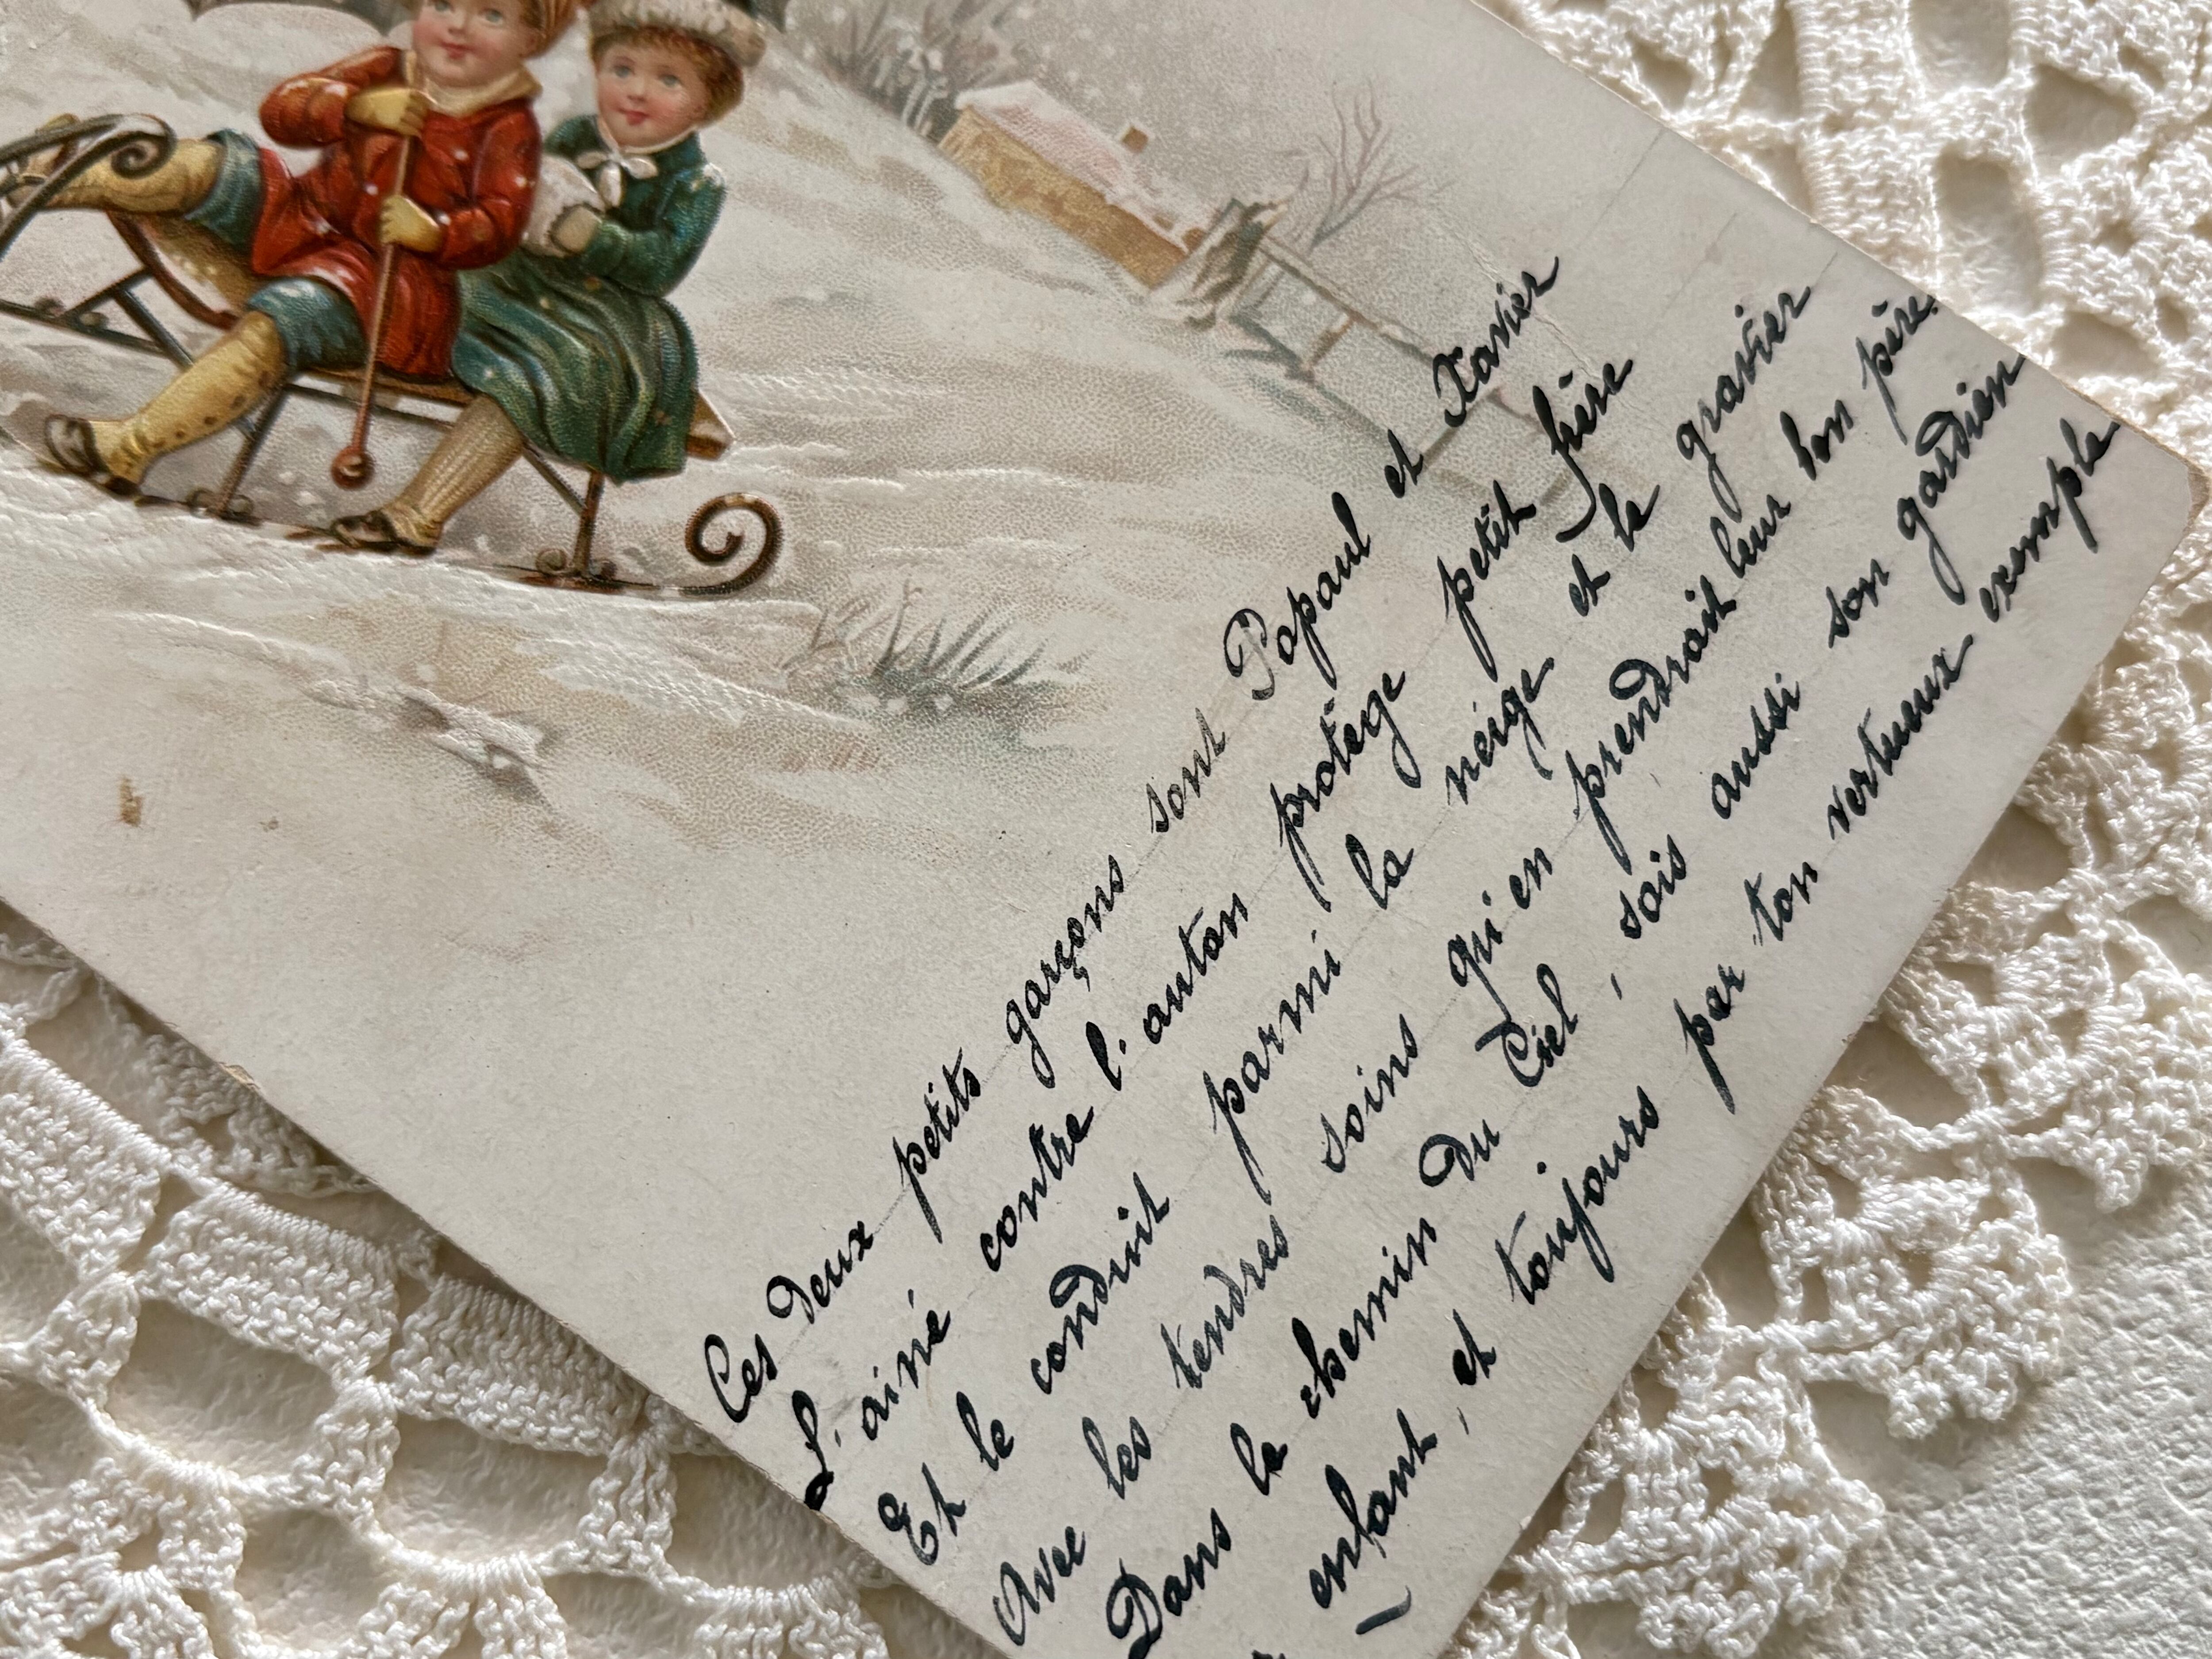 Ces deux petits garçons sont Popaul et Xavier
L'ainé contre l'autan protège petit frère
Et le conduit parmi la neige et le gravier
Avec les tendres soins qu'en prendrait leur bon père.
Dans le chemin du Ciel, sois aussi son gardien
enfant, et toujours par ton vertueux exemple